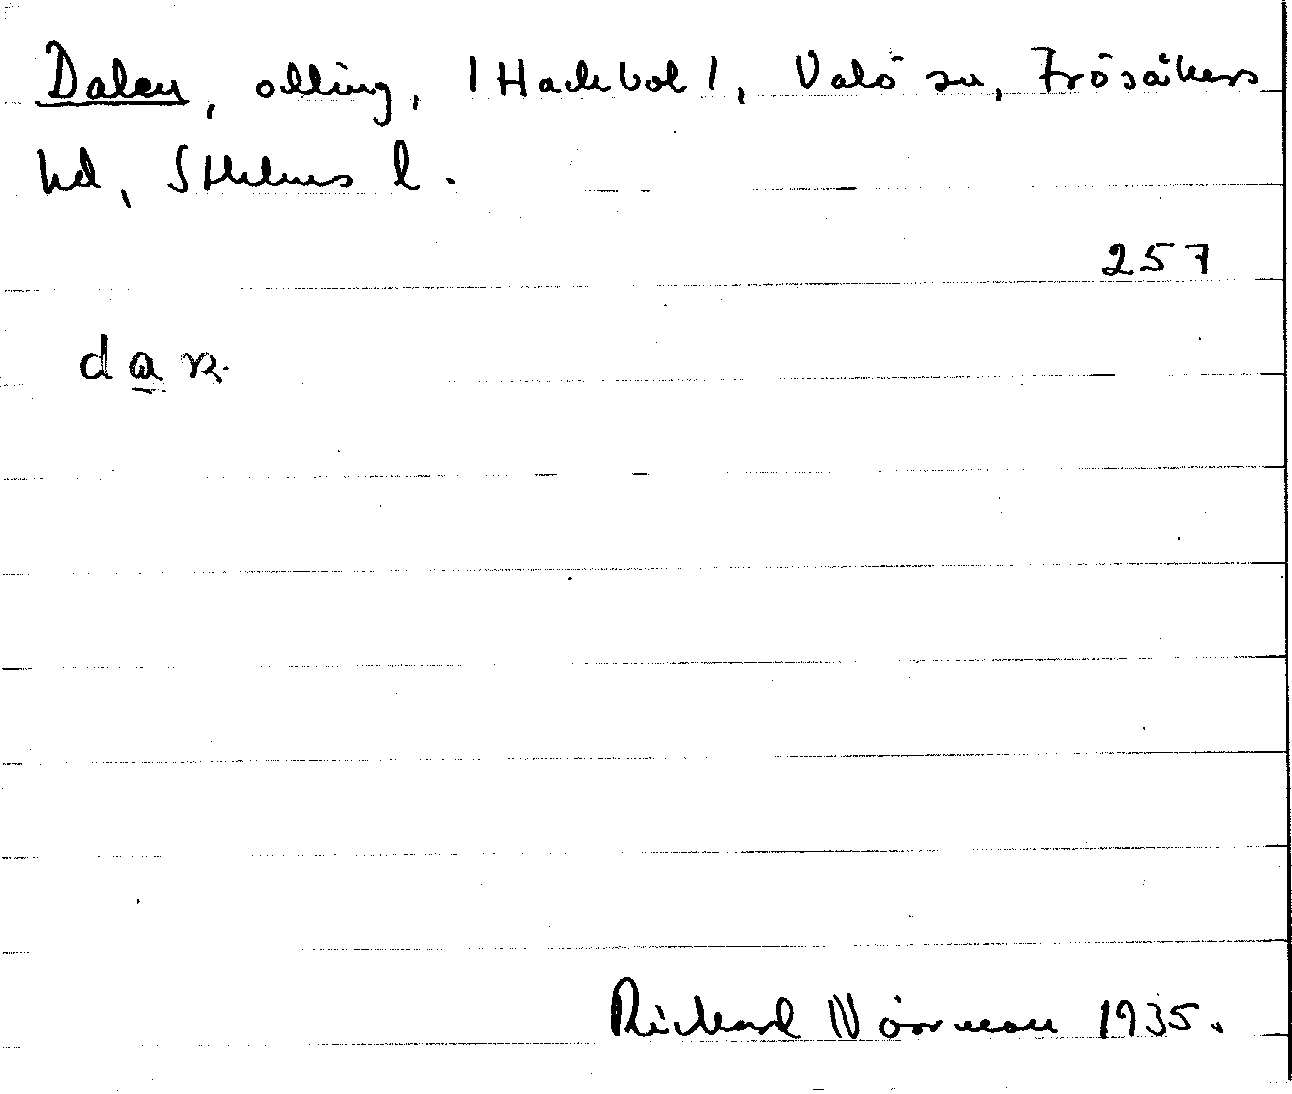 Dalen, odling, /Hackbol/, Valö sn, Frösåkers
hd, Sthlms l.
257
Rickard Nörrman 1935.